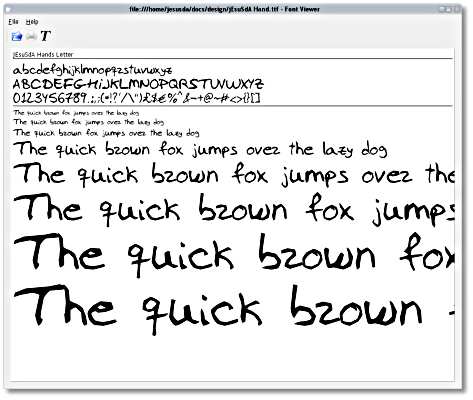 file:///home/jesusda/docs/design/jEsuSdA Hand.ttf - Font Viewer
File Help
jEsuSdA Hands Letter
abcdefghijklmnopqrstuvwxyz
ABCDEFGHIJKLMNOPQRSTUVWXYZ
The quick brown fox jumps over the lazy dog
The quick brown fox jumps over the lazy dog
The quick brown fox jumps over the lazy dog
The quick brown fox jumps over the lazy dog
The quick brown fox jumps over the
The quick brown fox jumps
The quick brown fox
The quick brown